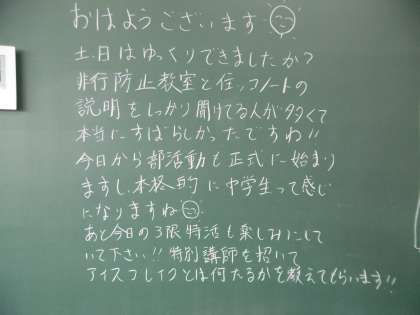 おはようございます
土日はゆっくりできましたか?
非行防止教室と伝ッコノートの
説明をしっかり聞けてる人が多くて
本当にすばらしかったですね!!
今日から部活動も正式に始まり
ますし、本格的に中学生って感じ
になりますね
あと今日の3限特活も楽しみにして
いて下さい!!特別講師を招いて
アイスブレイクとは何たるかを教えてもらいます!!